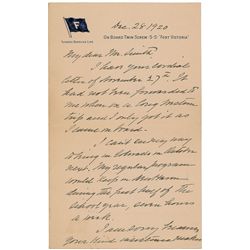 Dec. 28 1920
F
FURNESS BERMUDA LINE
ON BOARD TWIN SCREW S·S "FORT VICTORIA"
My dear Mr. Smith:
I have your cordial
letter of November 27th. It
had not been forwarded to
me when on a long motor
trip and I only got it as
I came on board.
I can't see my way
to being in Colorado in
next. My regular program
would keep in
during the first half of the
school year, seven hours
a week.
I am very
your kind